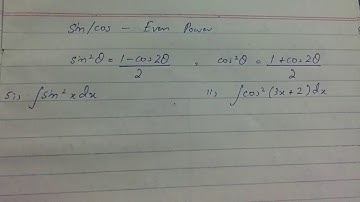 Sin/cos - Even Power
sin²θ = (1-cos2θ)/2 , cos²θ = (1+cos2θ)/2
5i) ∫sin²xdx ii) ∫cos²(3x+2)dx